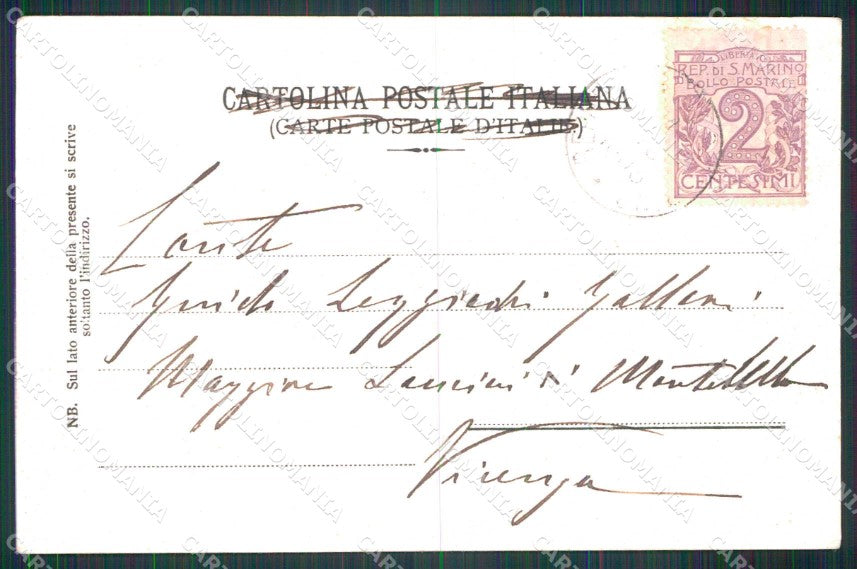 CARTOLINA POSTALE ITALIANA
(CARTE POSTALE D'ITALIE)
LIBERTAS
REP. DI S. MARINO
BOLLO POSTALE
2
CENTESIMI
NB. Sul lato anteriore della presente si scrive
soltanto l'indirizzo.
Conte
Guido Leggiadri Gallani
Maggiore Lancieri di Montebello
Vicenza
CARTOLINOMANIA